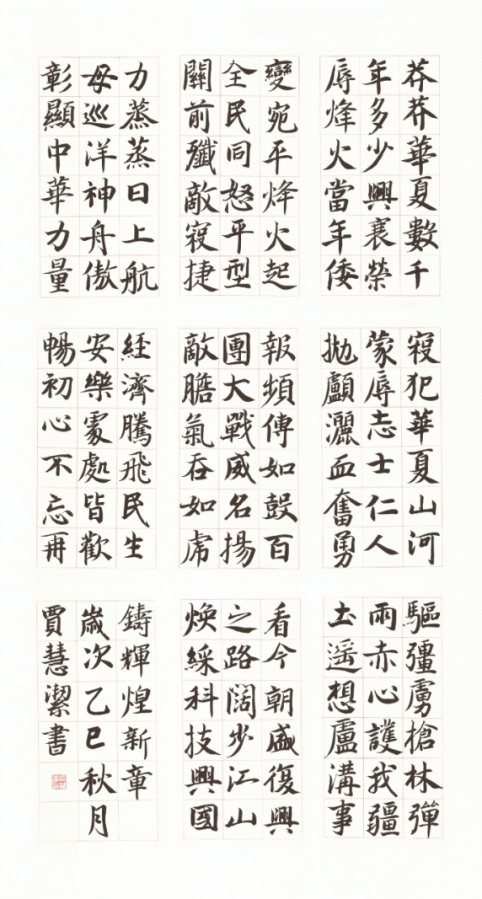 莽莽華夏數千
年多少興衰榮
辱烽火當年倭
寇犯華夏山河
蒙辱志士仁人
拋顱灑血奮勇
驅彊虜槍林彈
雨赤心護我疆
土遥想盧溝事
變宛平烽火起
全民同怒平型
關前殲敵寇捷
報頻傳如鼓百
團大戰威名揚
敵膽氣吞如虎
看今朝盛復興
之路闊步江山
煥綵科技興國
力蒸蒸日上航
母巡洋神舟傲
彰顯中華力量
經濟騰飛民生
安樂處處皆歡
暢初心不忘再
鑄輝煌新章
歲次乙巳秋月
賈慧潔書